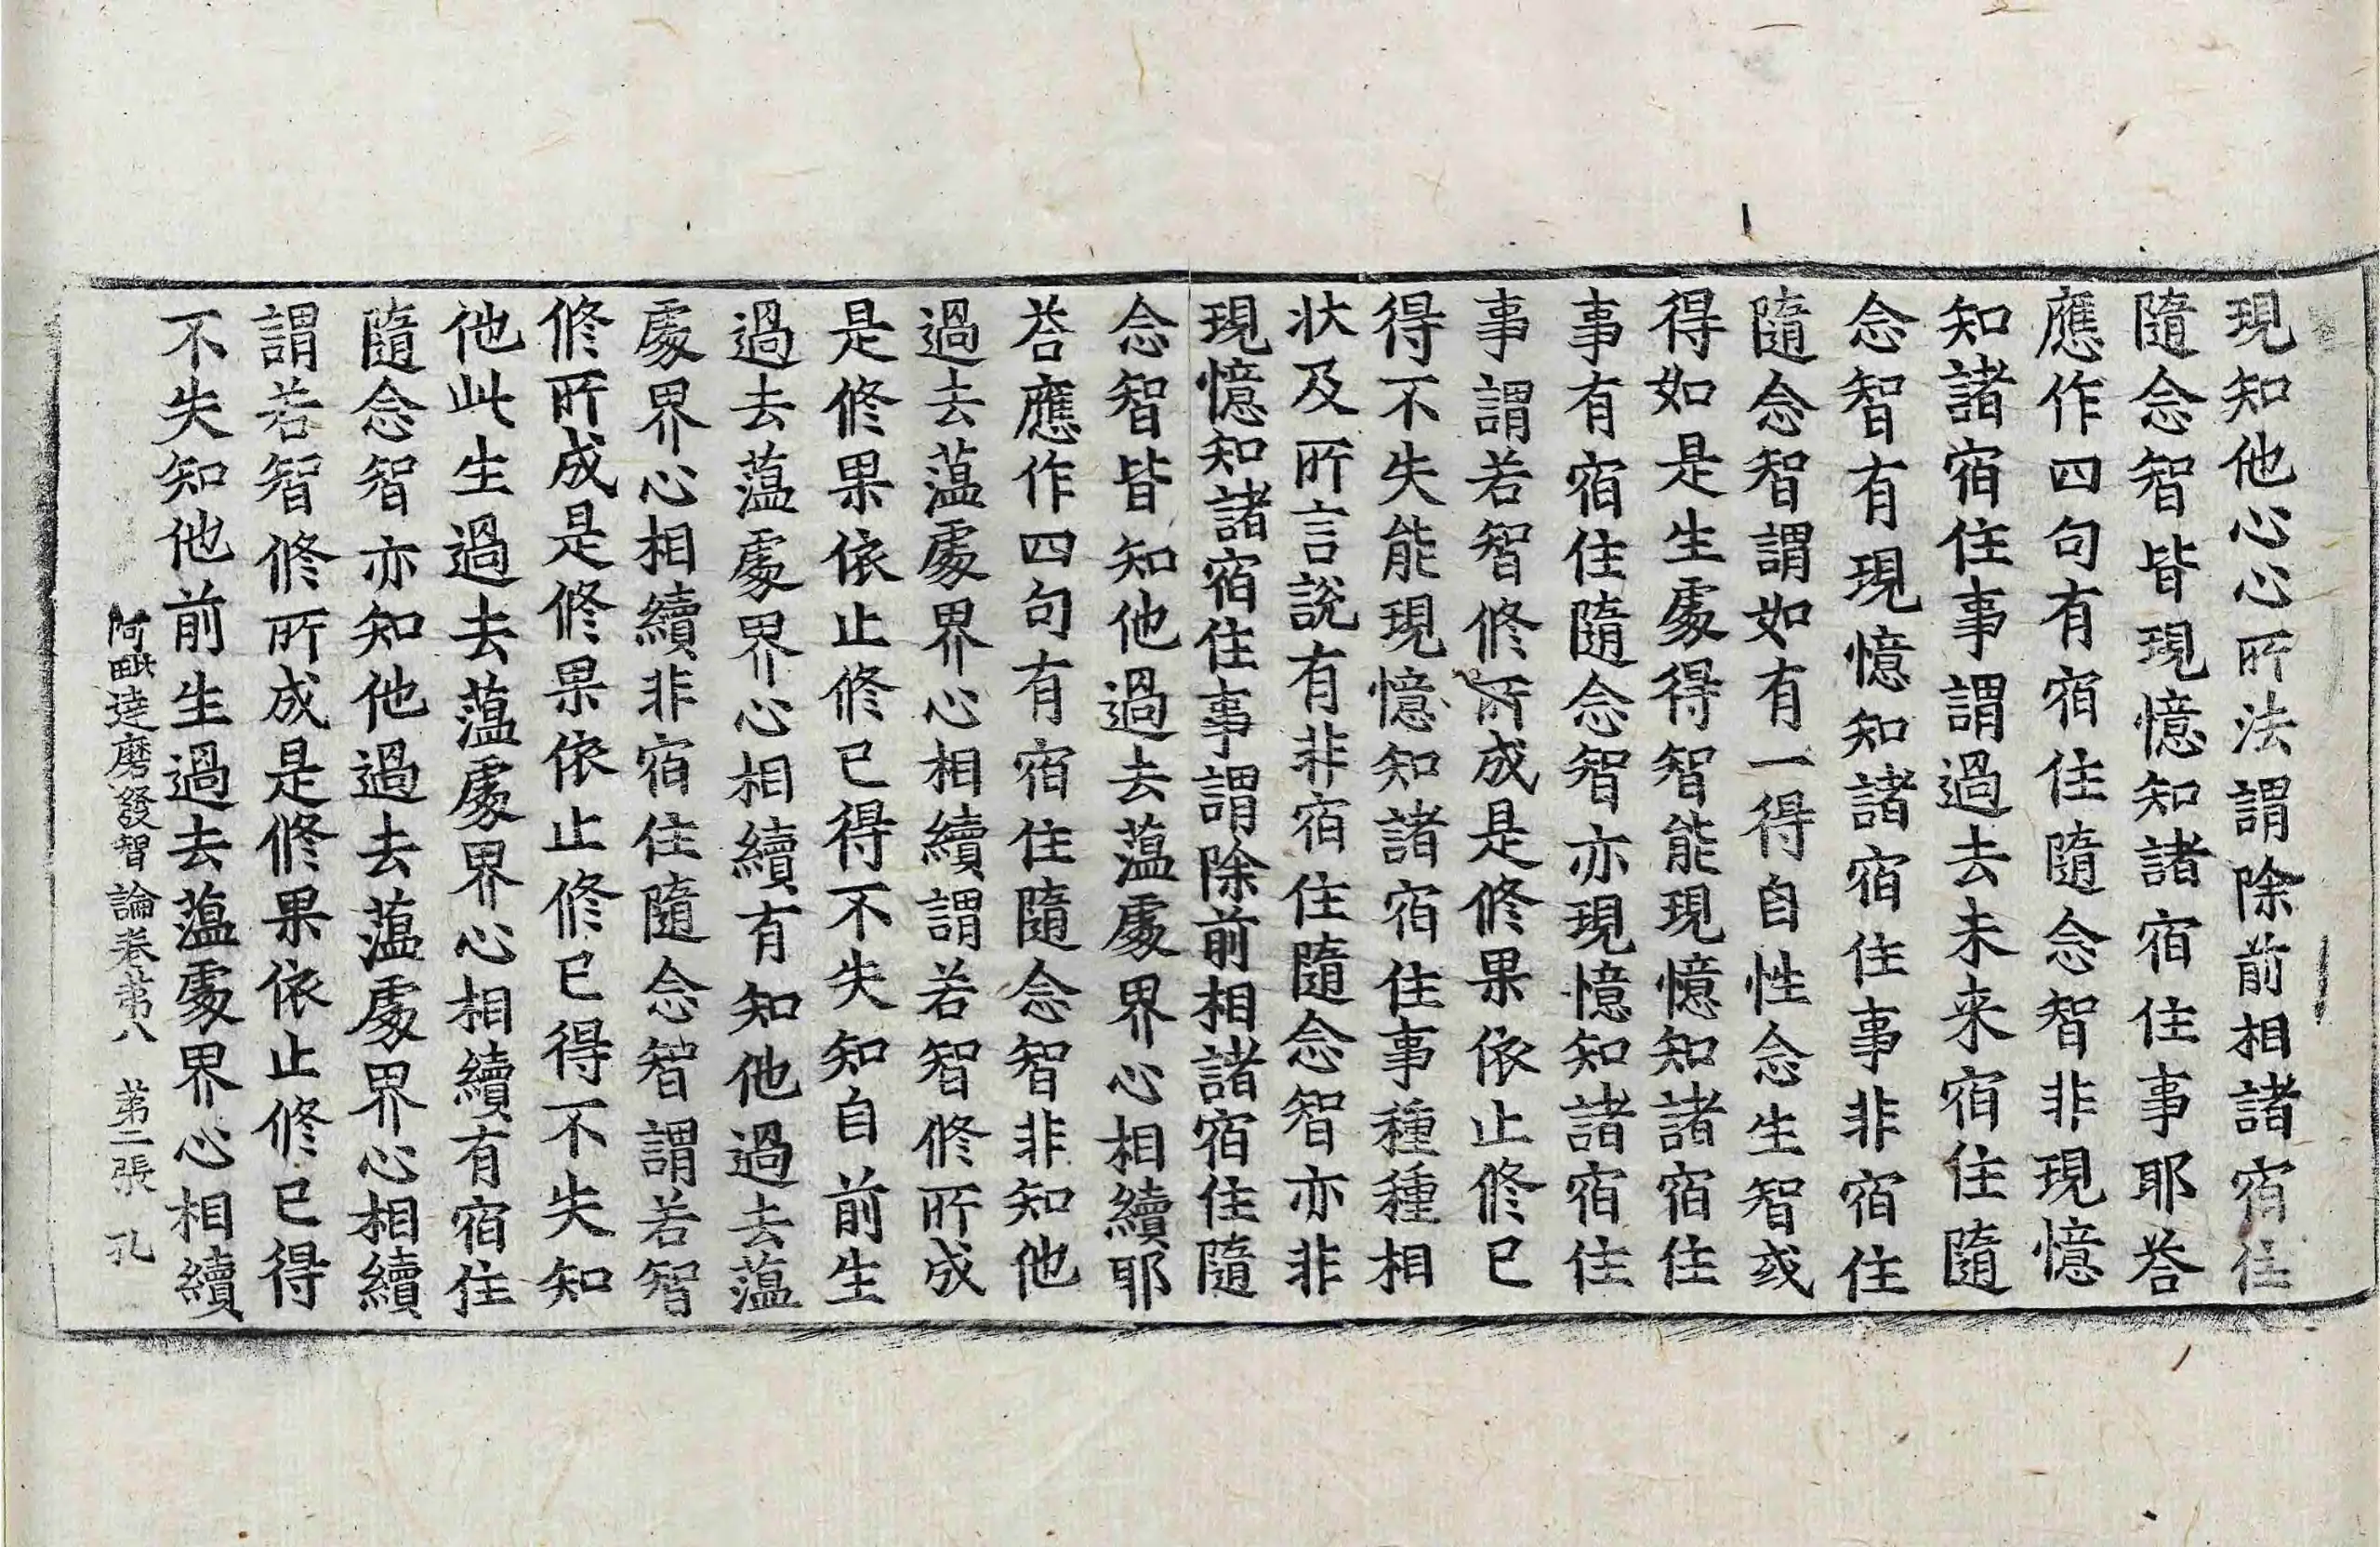 現知他心心所法謂除前相諸宿住
隨念智皆現憶知諸宿住事耶荅
應作四句有宿住隨念智非現憶
知諸宿住事謂過去未来宿住隨
念智有現憶知諸宿住事非宿住
隨念智謂如有一得自性念生智或
得如是生處得智能現憶知諸宿住
事有宿住隨念智亦現憶知諸宿住
事謂若智修所成是修果依止修已
得不失能現憶知諸宿住事種種相
狀及所言說有非宿住隨念智亦非
現憶知諸宿住事謂除前相諸宿住隨
念智皆知他過去薀處界心相續耶
荅應作四句有宿住隨念智非知他
過去薀處界心相續謂若智修所成
是修果依止修已得不失知自前生
過去薀處界心相續有知他過去薀
處界心相續非宿住隨念智謂若智
修所成是修果依止修已得不失知
他此生過去薀處界心相續有宿住
隨念智亦知他過去薀處界心相續
謂若智修所成是修果依止修已得
不失知他前生過去薀處界心相續
阿毗達磨發智論卷苐八 苐二張 孔